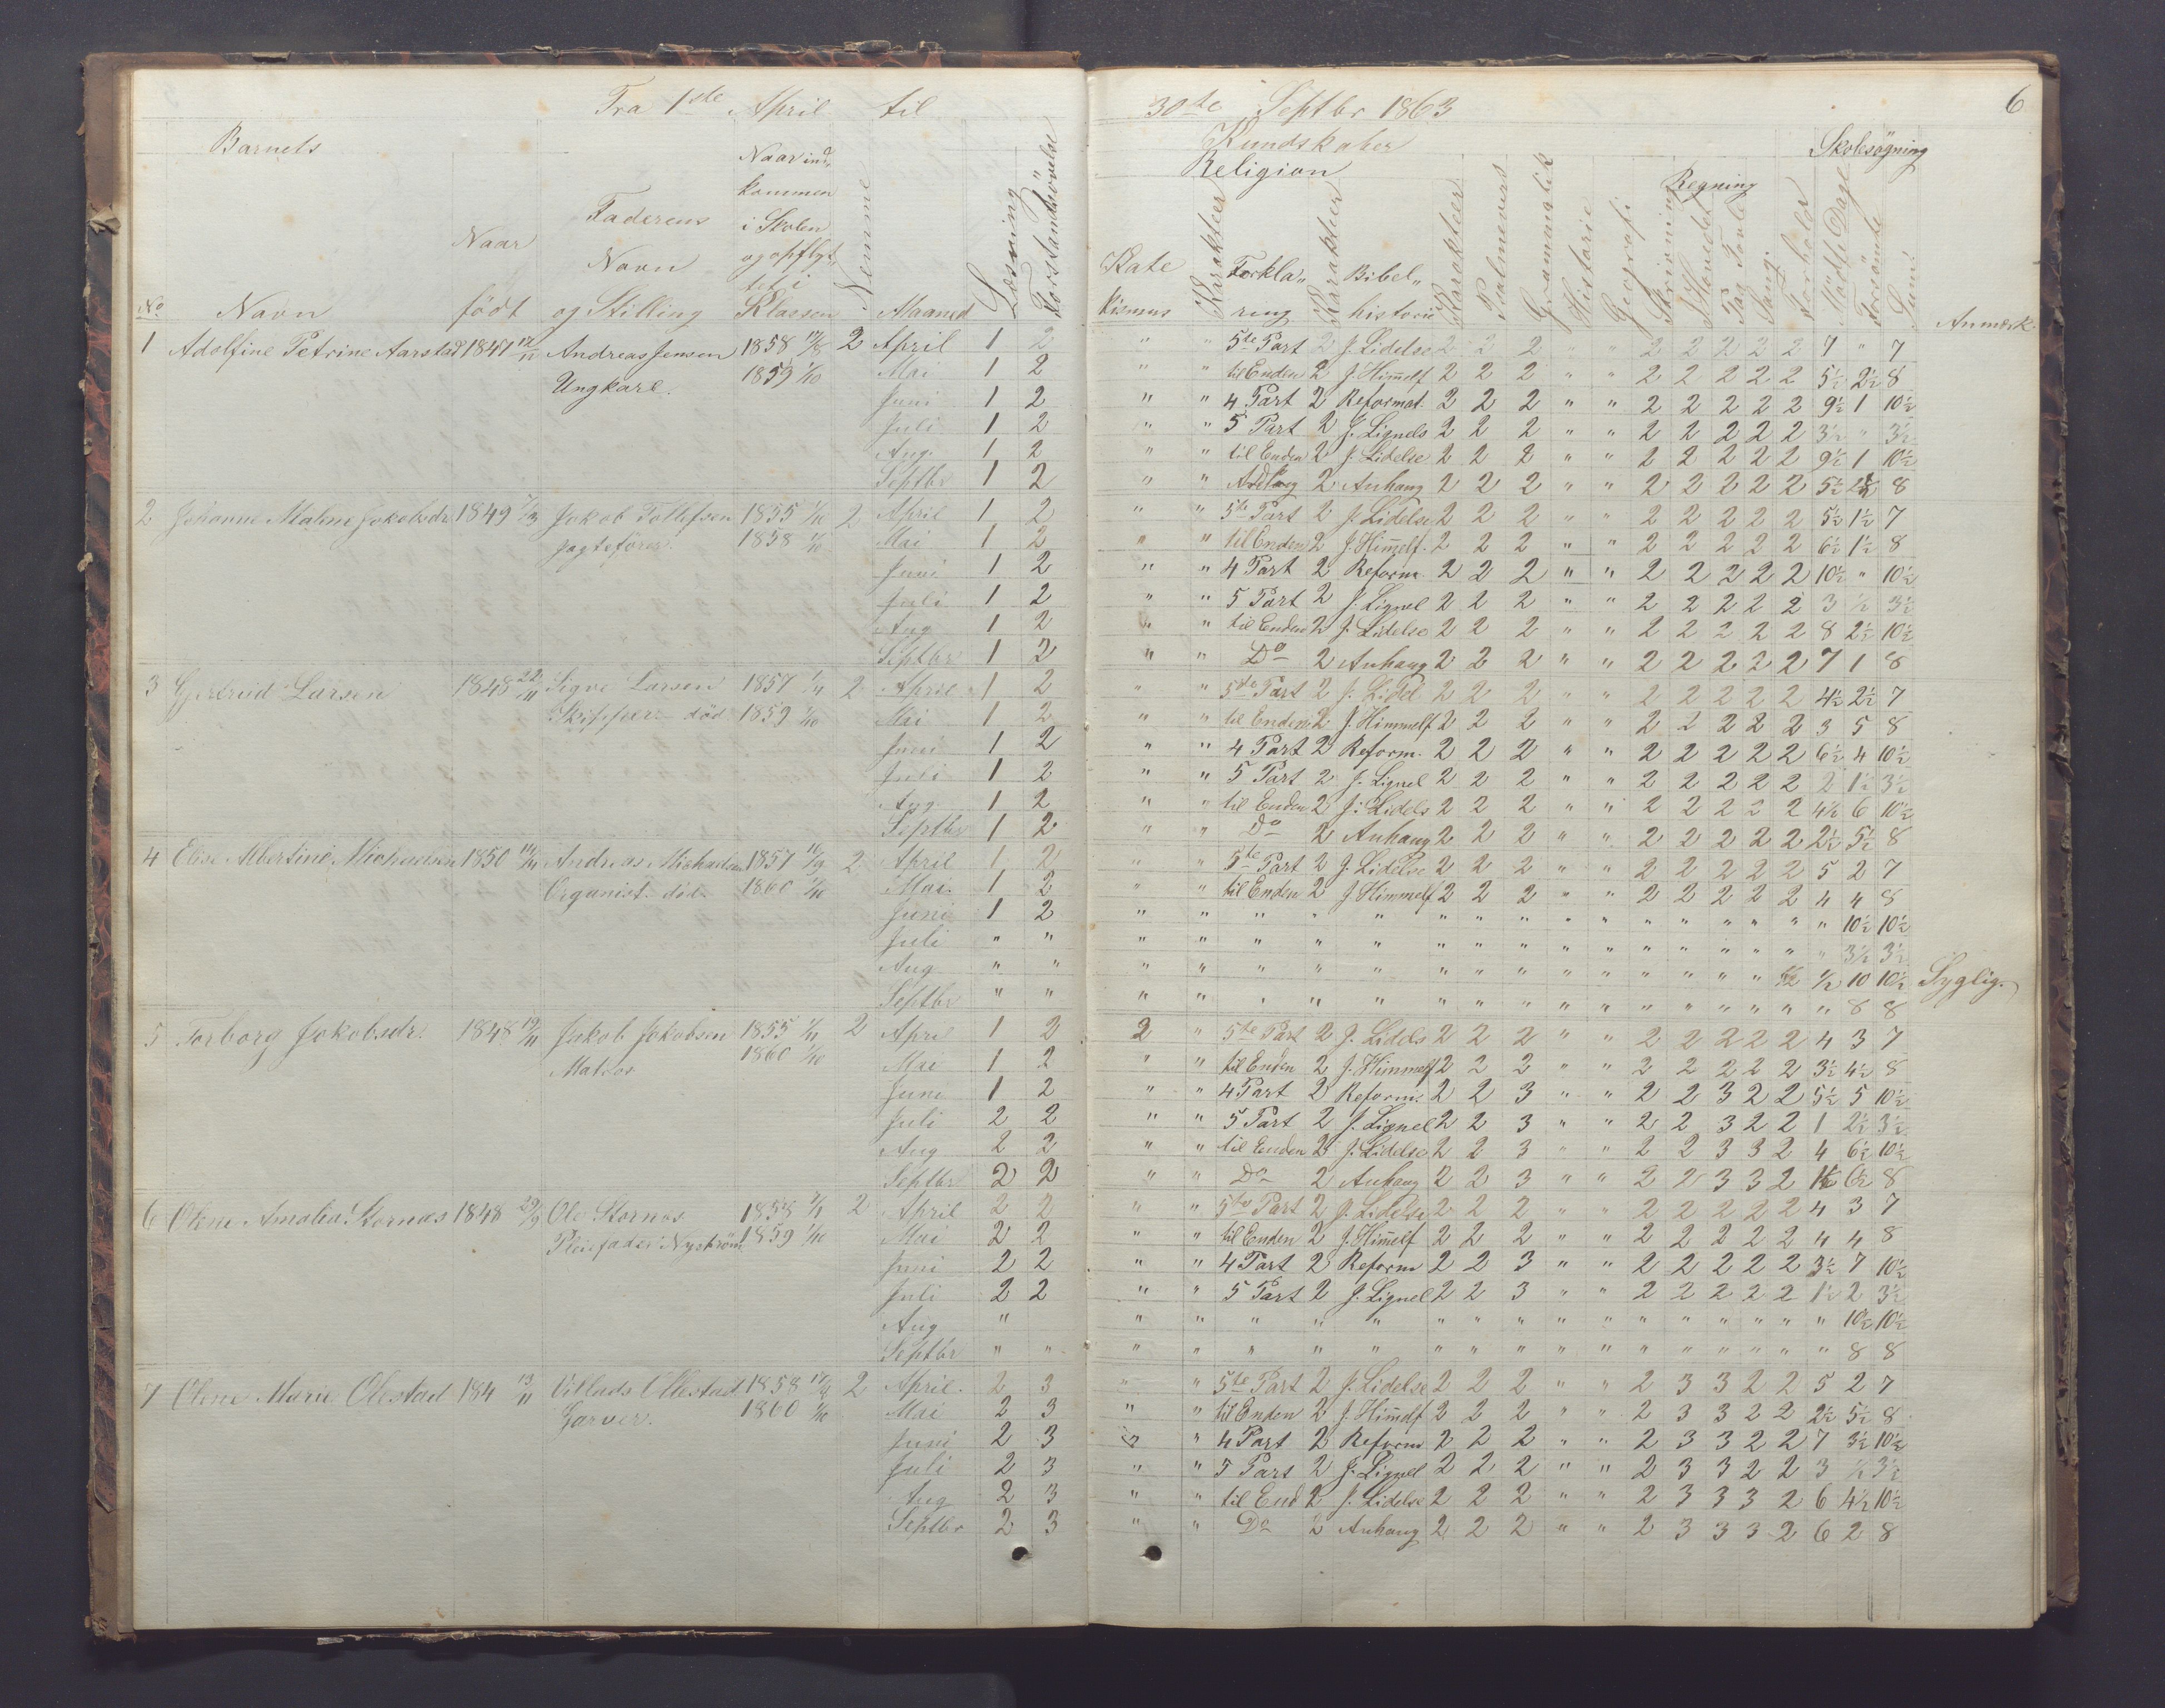 Fra 1ste April til 30te Septbr 1863 6
Barnets Kundskaber Skolesøgning
Religion Regning
No Navn Naar født Faderens Navn og Stilling Naar indkommen i Skolen og opflyttet i Klassen Nemme Maaned Læsning Forstandsøvelse Katekismus Karakteer Forklaring Karakteer Bibelhistorie Karakteer Psalmevers Grammatik Historie Geografi Skrivning I Hovedet Paa Tavle Sang Forhold Mødte Dage Forsømte Sum Anmærk.
1 Adolfine Petrine Aarstad 1847 Andreas Jensen 1858 2 April 1 2 " " 5te Part 2 J. Lidelse 2 2 2 " " 2 2 2 2 2 7 " 7
Ungkarl. 1859 1/10 Mai 1 2 " " til Enden 2 J. Him̅elf 2 2 2 " " 2 2 2 2 2 5½ 2½ 8
Juni 1 2 " " 4 Part 2 Reformat. 2 2 2 " " 2 2 2 2 2 9½ 1 10½
Juli 1 2 " " 5 Part 2 J. Lignels 2 2 2 " " 2 2 2 2 2 3½ " 3½
Aug. 1 2 " " til Enden 2 J. Lidelse 2 2 2 " " 2 2 2 2 2 9½ 1 10½
Septbr 1 2 " " 2 Anhang 2 2 2 " " 2 2 2 2 2 5½ 2½ 8
2 Johanne Malene Jakobsdr. 1849 Jakob Tollefsen 1855 1/10 2 April 1 2 " " 5te Part 2 J. Lidelse 2 2 2 " " 2 2 2 2 2 5½ 1½ 7
Jagtefører. 1858 1/10 Mai 1 2 " " til Enden 2 J. Him̅elf. 2 2 2 " " 2 2 2 2 2 6½ 1½ 8
Juni 1 2 " " 4 Part 2 Reform. 2 2 2 " " 2 2 2 2 2 10½ " 10½
Juli 1 2 " " 5 Part 2 J. Lignel 2 2 2 " " 2 2 2 2 2 3 ½ 3½
Aug 1 2 " " til Enden 2 J. Lidelse 2 2 2 " " 2 2 2 2 2 8 2½ 10½
Septbr 1 2 " " Do 2 Anhang 2 2 2 " " 2 2 2 2 2 7 1 8
3 Gjertrud Larsen 1848 22/11 Sigve Larsen 1857 2 April 1 2 " " 5te Part 2 J. Lidel 2 2 2 " " 2 2 2 2 2 4½ 2½ 7
Skipper død 1859 1/10 Mai 1 2 " " til Enden 2 J. Himmelf 2 2 2 " " 2 2 2 2 2 3 5 8
Juni 1 2 " " 4 Part 2 Reform. 2 2 2 " " 2 2 2 2 2 6½ 4 10½
Juli 1 2 " " 5 Part 2 J. Lignel 2 2 2 " " 2 2 2 2 2 2 1½ 3½
Aug. 1 2 " " til Enden 2 J. Lidels 2 2 2 " " 2 2 2 2 2 4½ 6 10½
Septbr 1 2 " " Do 2 Anhang 2 2 2 " " 2 2 2 2 2 2½ 5½ 8
4 Elise Albertine Michaelsen 1850 Andreas Michaelsen 1857 2 April 1 2 " " 5te Part 2 J. Lidelse 2 2 2 " " 2 2 2 2 2 5 2 7
Organist. død. 1860 1/10 Mai. 1 2 " " til Enden 2 J Himmelf 2 2 2 " " 2 2 2 2 2 4 4 8
Juni 1 2 " " " " " " " " " " " " " " " " 10½ 10½
Juli " " " " " " " " " " " " " " " " " " 3½ 3½
Aug " " " " " " " " " " " " " " " " ½ 10 10½ Syglig.
Septbr " " " " " " " " " " " " " " " " " " 8 8
5 Torborg Jakobsdr. 1848 19/11 Jakob Jakobsen 1855 2 April 1 2 2 " 5te Part 2 J. Lidels 2 2 2 " " 2 2 2 2 2 4 3 7
Matros 1860 1/10 Mai 1 2 " " til Enden 2 J. Himmelf 2 2 2 " " 2 2 2 2 2 3½ 4½ 8
Juni 1 2 " " 4 Part 2 Reform. 2 2 3 " " 2 2 3 2 2 5½ 5 10½
Juli 2 2 " " 5 Part 2 J. Lignel 2 2 3 " " 2 2 3 2 2 1 2½ 3½
Aug 2 2 " " til Enden 2 J. Lidelse 2 2 3 " " 2 2 3 3 2 4 6½ 10½
Septbr 2 2 " " Do 2 Anhang 2 2 3 " " 2 2 3 3 2 1½ 6½ 8
6 Olene Amalia Stornæs 1848 29/9 Ole Stornæs 1858 2 April 2 2 " " 5te Part 2 J. Lidelse 2 2 2 " " 2 2 2 2 2 4 3 7
Pleiefader: Nyström 1859 1/10 Mai 2 2 " " til Enden 2 J. Him̅elf 2 2 2 " " 2 2 2 2 2 4 4 8
Juni 2 2 " " 4 Part 2 Reform 2 2 3 " " 2 2 2 2 2 3½ 7 10½
Juli 2 2 " " 5 Part 2 J. Lignel 2 2 3 " " 2 2 2 2 2 1½ 2 3½
Aug " " " " " " " " " " " " " " " " " 10½ 10½
Septbr " " " " " " " " " " " " " " " " " " 8 8
7 Olene Marie Olestad 184 13/11 Villads Ollestad 1858 2 April. 2 3 " " 5te Part 2 J. Lidelse 2 2 2 " " 2 3 3 2 2 5 2 7
Garver. 1860 1/10 Mai 2 3 " " til Enden 2 J. Him̅elf 2 2 2 " " 2 3 3 2 2 2½ 5½ 8
Juni 2 3 " " 4 Part 2 Reform 2 2 2 " " 2 3 3 2 2 7 3½ 10½
Juli 2 3 " " 5 Part 2 J. Lignel 2 2 2 " " 2 3 3 2 2 3 ½ 3½
Aug 2 3 " " til End 2 J. Lidelse 2 2 2 " " 2 3 3 3 2 6 4½ 10½
Septbr 2 3 " " Do 2 Anhang 2 2 2 " " 2 3 3 3 2 6 2 8